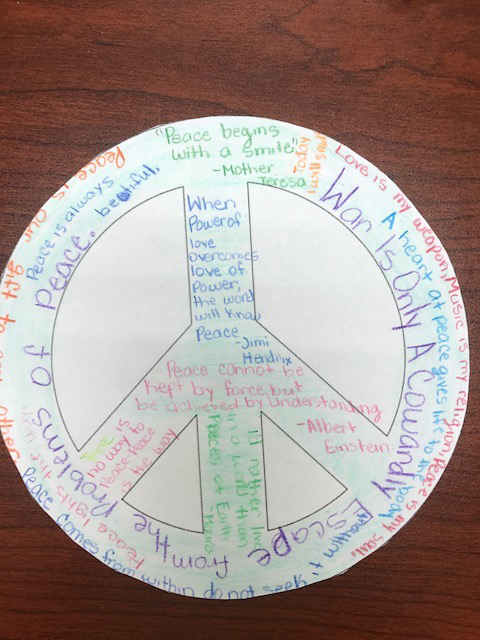 "Peace begins
with a smile"
-Mother
Teresa
Today
I will smile
Love is my weapon, Music is my religion, Peace is my soul.
A heart at peace gives life to the body
War Is Only A Cowardly Escape from the Problems of Peace.
Peace is always
beautiful.
Peace is our gift to each other
When
Power of
love
overcomes
love of
Power,
the world
will know
Peace
-Jimi
Hendrix
Peace cannot be
Kept by force, but
be achieved by Understanding
-Albert
Einstein
There
no way to
Peace, Peace
is the way
I'd rather live
in a world than
Pieces of Earth
Peace lights the
Peace comes from within do